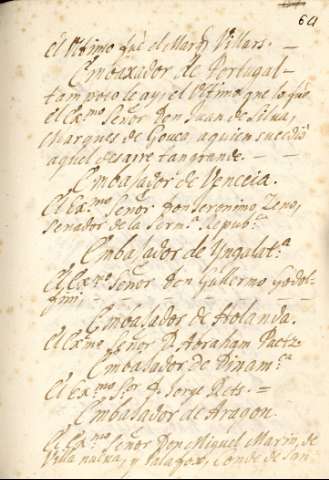 64
el Vltimo fue el Marqs Villars. —
Embaxador de Portugal —
tampoco le ay, el Vltimo que lo fue
el Exmo Señor Don Juan de Silua,
Marques de Gouea, a quien sucedio
aquel desayre tan grande. — —
Embasador de Venecia.
El Exmo Señor Don Geronimo Zeno,
Senador de la Serma Republca
Embasador de Yngalatra
El Exmo Señor Don Guillermo Godol-
fin;
Embasador de Holanda.
El Exmo Señor D. Abraham Paetz
Embasador de Dinamca
El Exmo Sor D. Jorge Rets. =
Embasador de Aragon.
El Exmo Señor Don Miguel Marin, de
Villa nueua, y Palafox, Conde de San